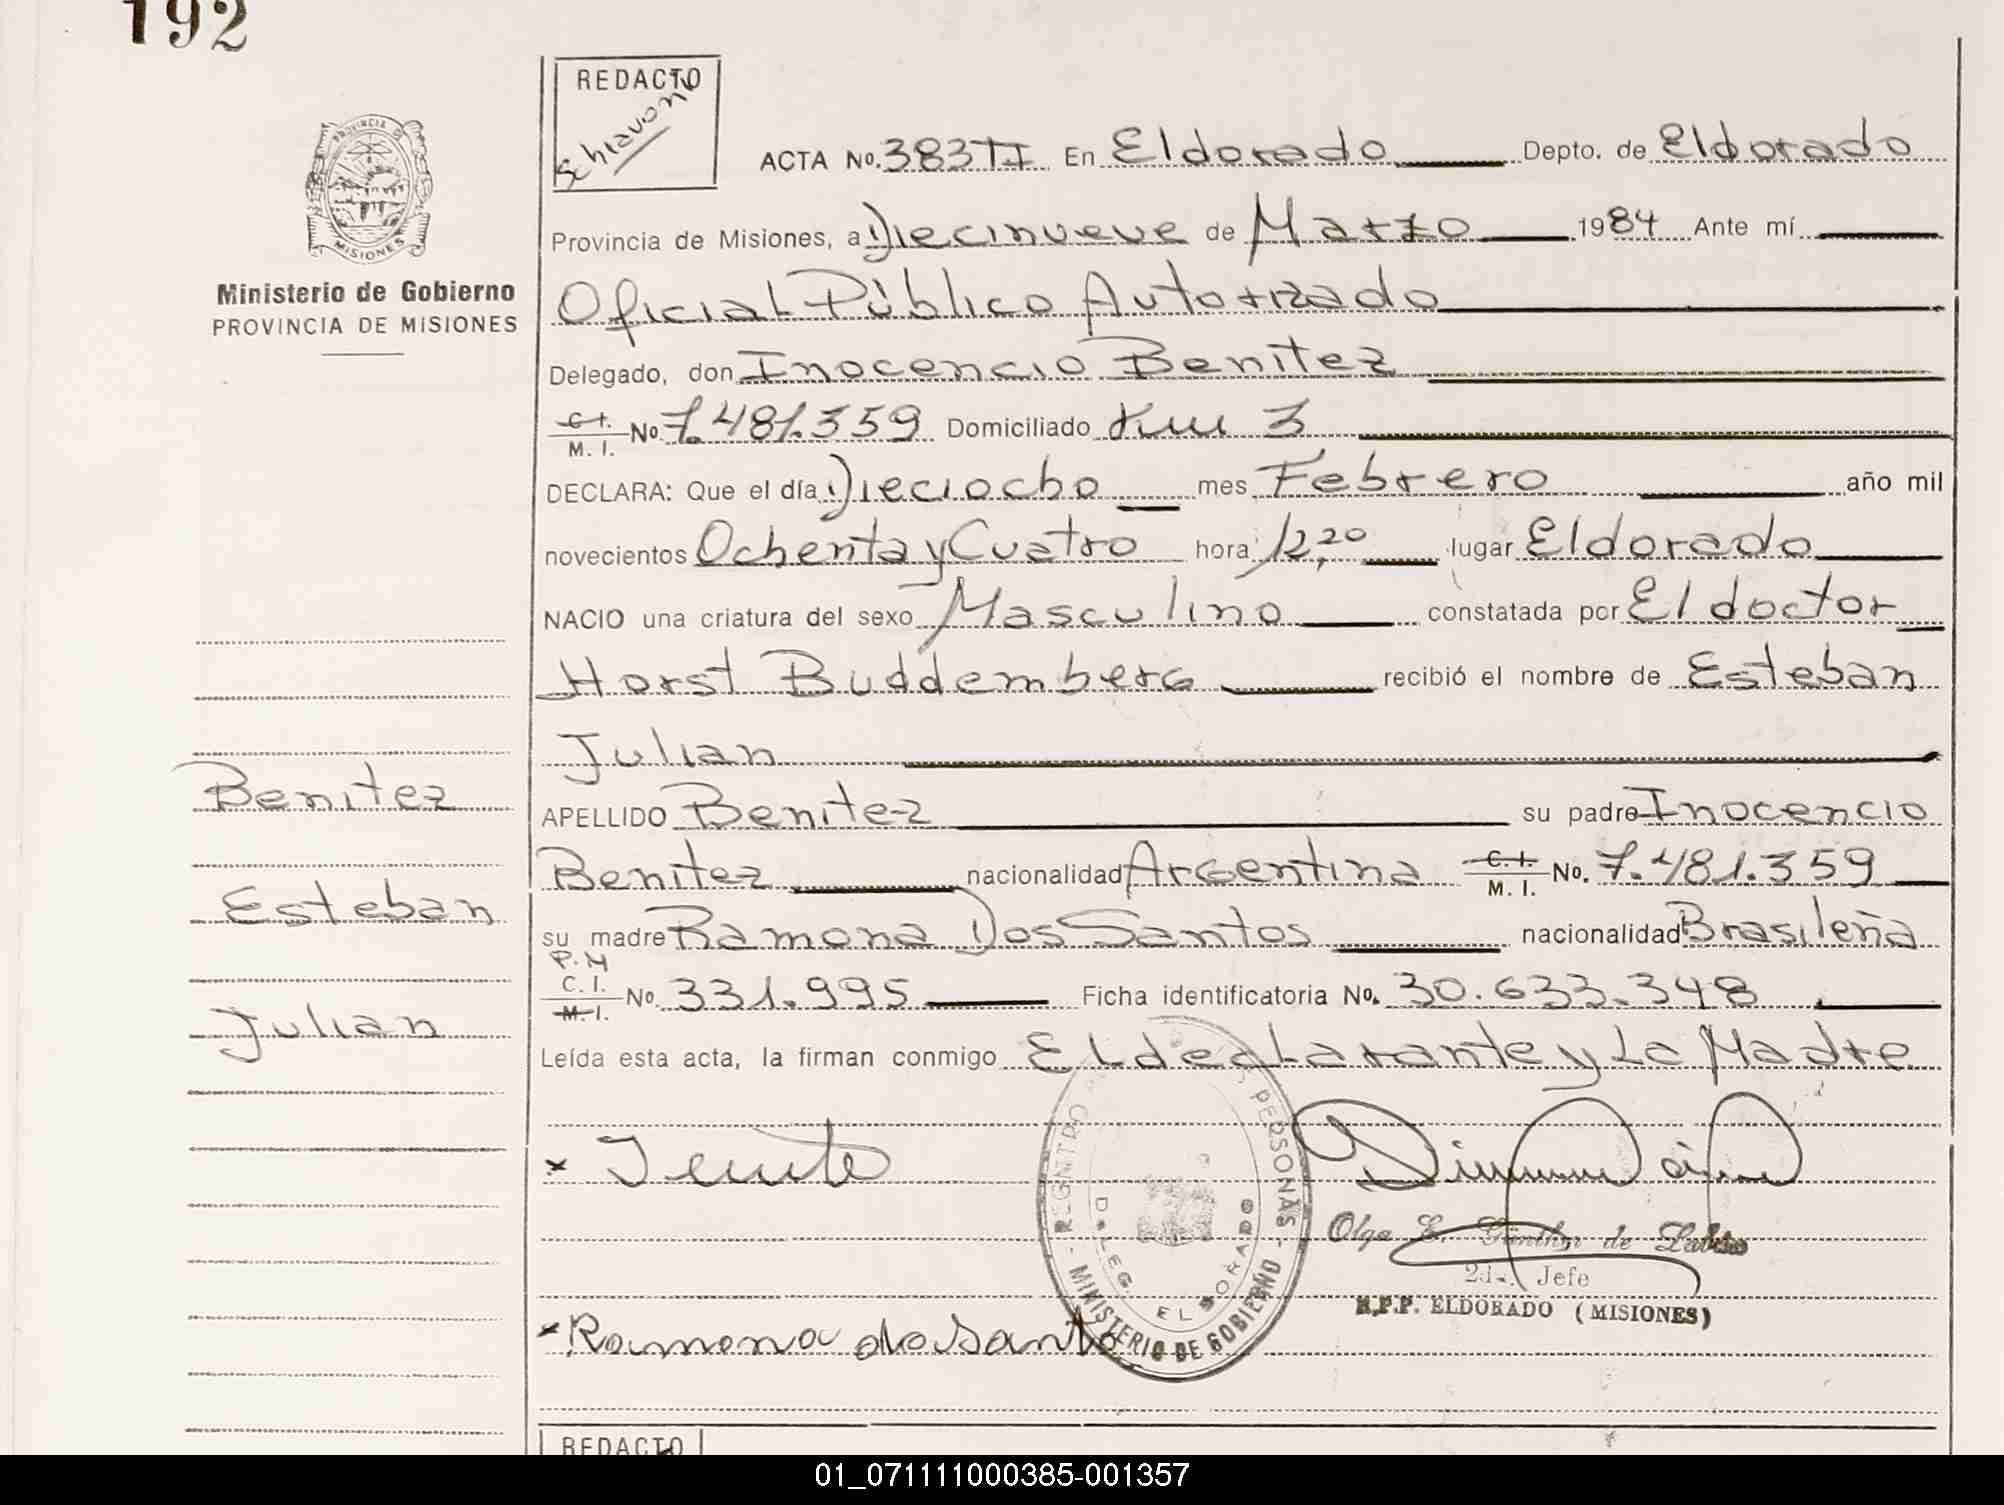 192
REDACTO
Schiavoni
ACTA No. 383 TI En Eldorado Depto. de Eldorado
PROVINCIA DE MISIONES
Provincia de Misiones, a Diecinueve de Marzo 1984 Ante mí
Ministerio de Gobierno
PROVINCIA DE MISIONES
Oficial Público Autorizado
Delegado, don Inocencio Benitez
C. I. M. I. No. 7.481.359 Domiciliado Km 3
DECLARA: Que el día Dieciocho mes Febrero año mil
novecientos Ochenta y Cuatro hora 12,20 lugar Eldorado
NACIO una criatura del sexo Masculino constatada por El doctor
Horst Buddemberg recibió el nombre de Esteban
Julian
Benitez
APELLIDO Benitez su padre Inocencio
Benitez nacionalidad Argentina C. I. M. I. No. 7.481.359
Esteban
su madre Ramona Dos Santos nacionalidad Brasileña
P. M
C. I. M. I. No. 331.995 Ficha identificatoria No. 30.633.348
Julian
Leída esta acta, la firman conmigo El declarante y La Madre
REGISTRO PERSONAS - MINISTERIO DE GOBIERNO -
DELEG. ELDORADO
Olga E. Günther de
2do. Jefe
R.P.P. ELDORADO (MISIONES)
x Ramona do Santo
REDACTO
01_071111000385-001357